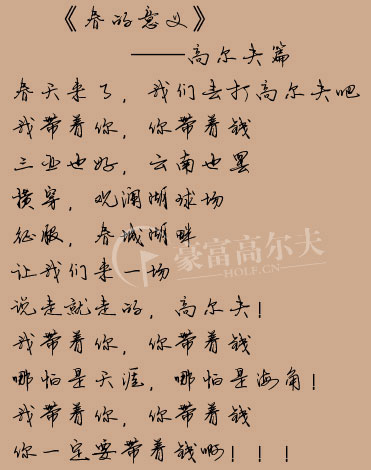 《春的意义》
——高尔夫篇
春天来了，我们去打高尔夫吧
我带着你，你带着钱
三亚也好，云南也罢
横穿，观澜湖球场
征服，春城湖畔
让我们来一场
说走就走的，高尔夫！
我带着你，你带着钱
哪怕是天涯，哪怕是海角！
我带着你，你带着钱
你一定要带着钱啊！！！
豪富高尔夫
HOLF.CN